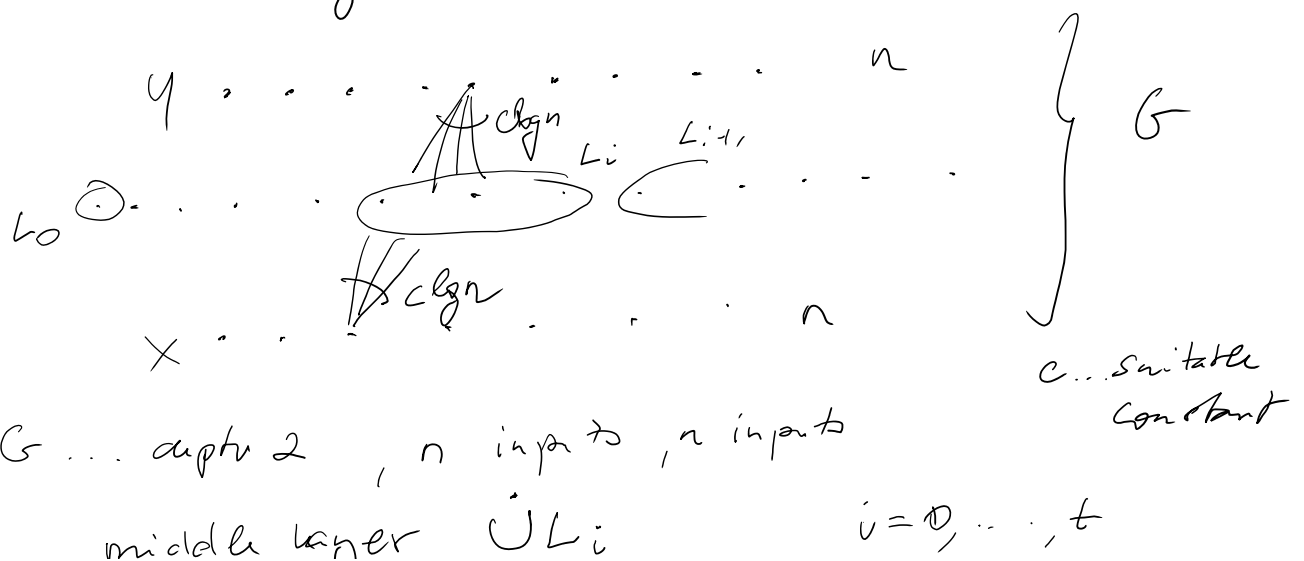 y n
clgn
Li Li+1
G
L0
clgn
x n
c...suitable
constant
G ... depth 2, n inputs, n inputs
middle layer ⨃ Li i=0,...,t